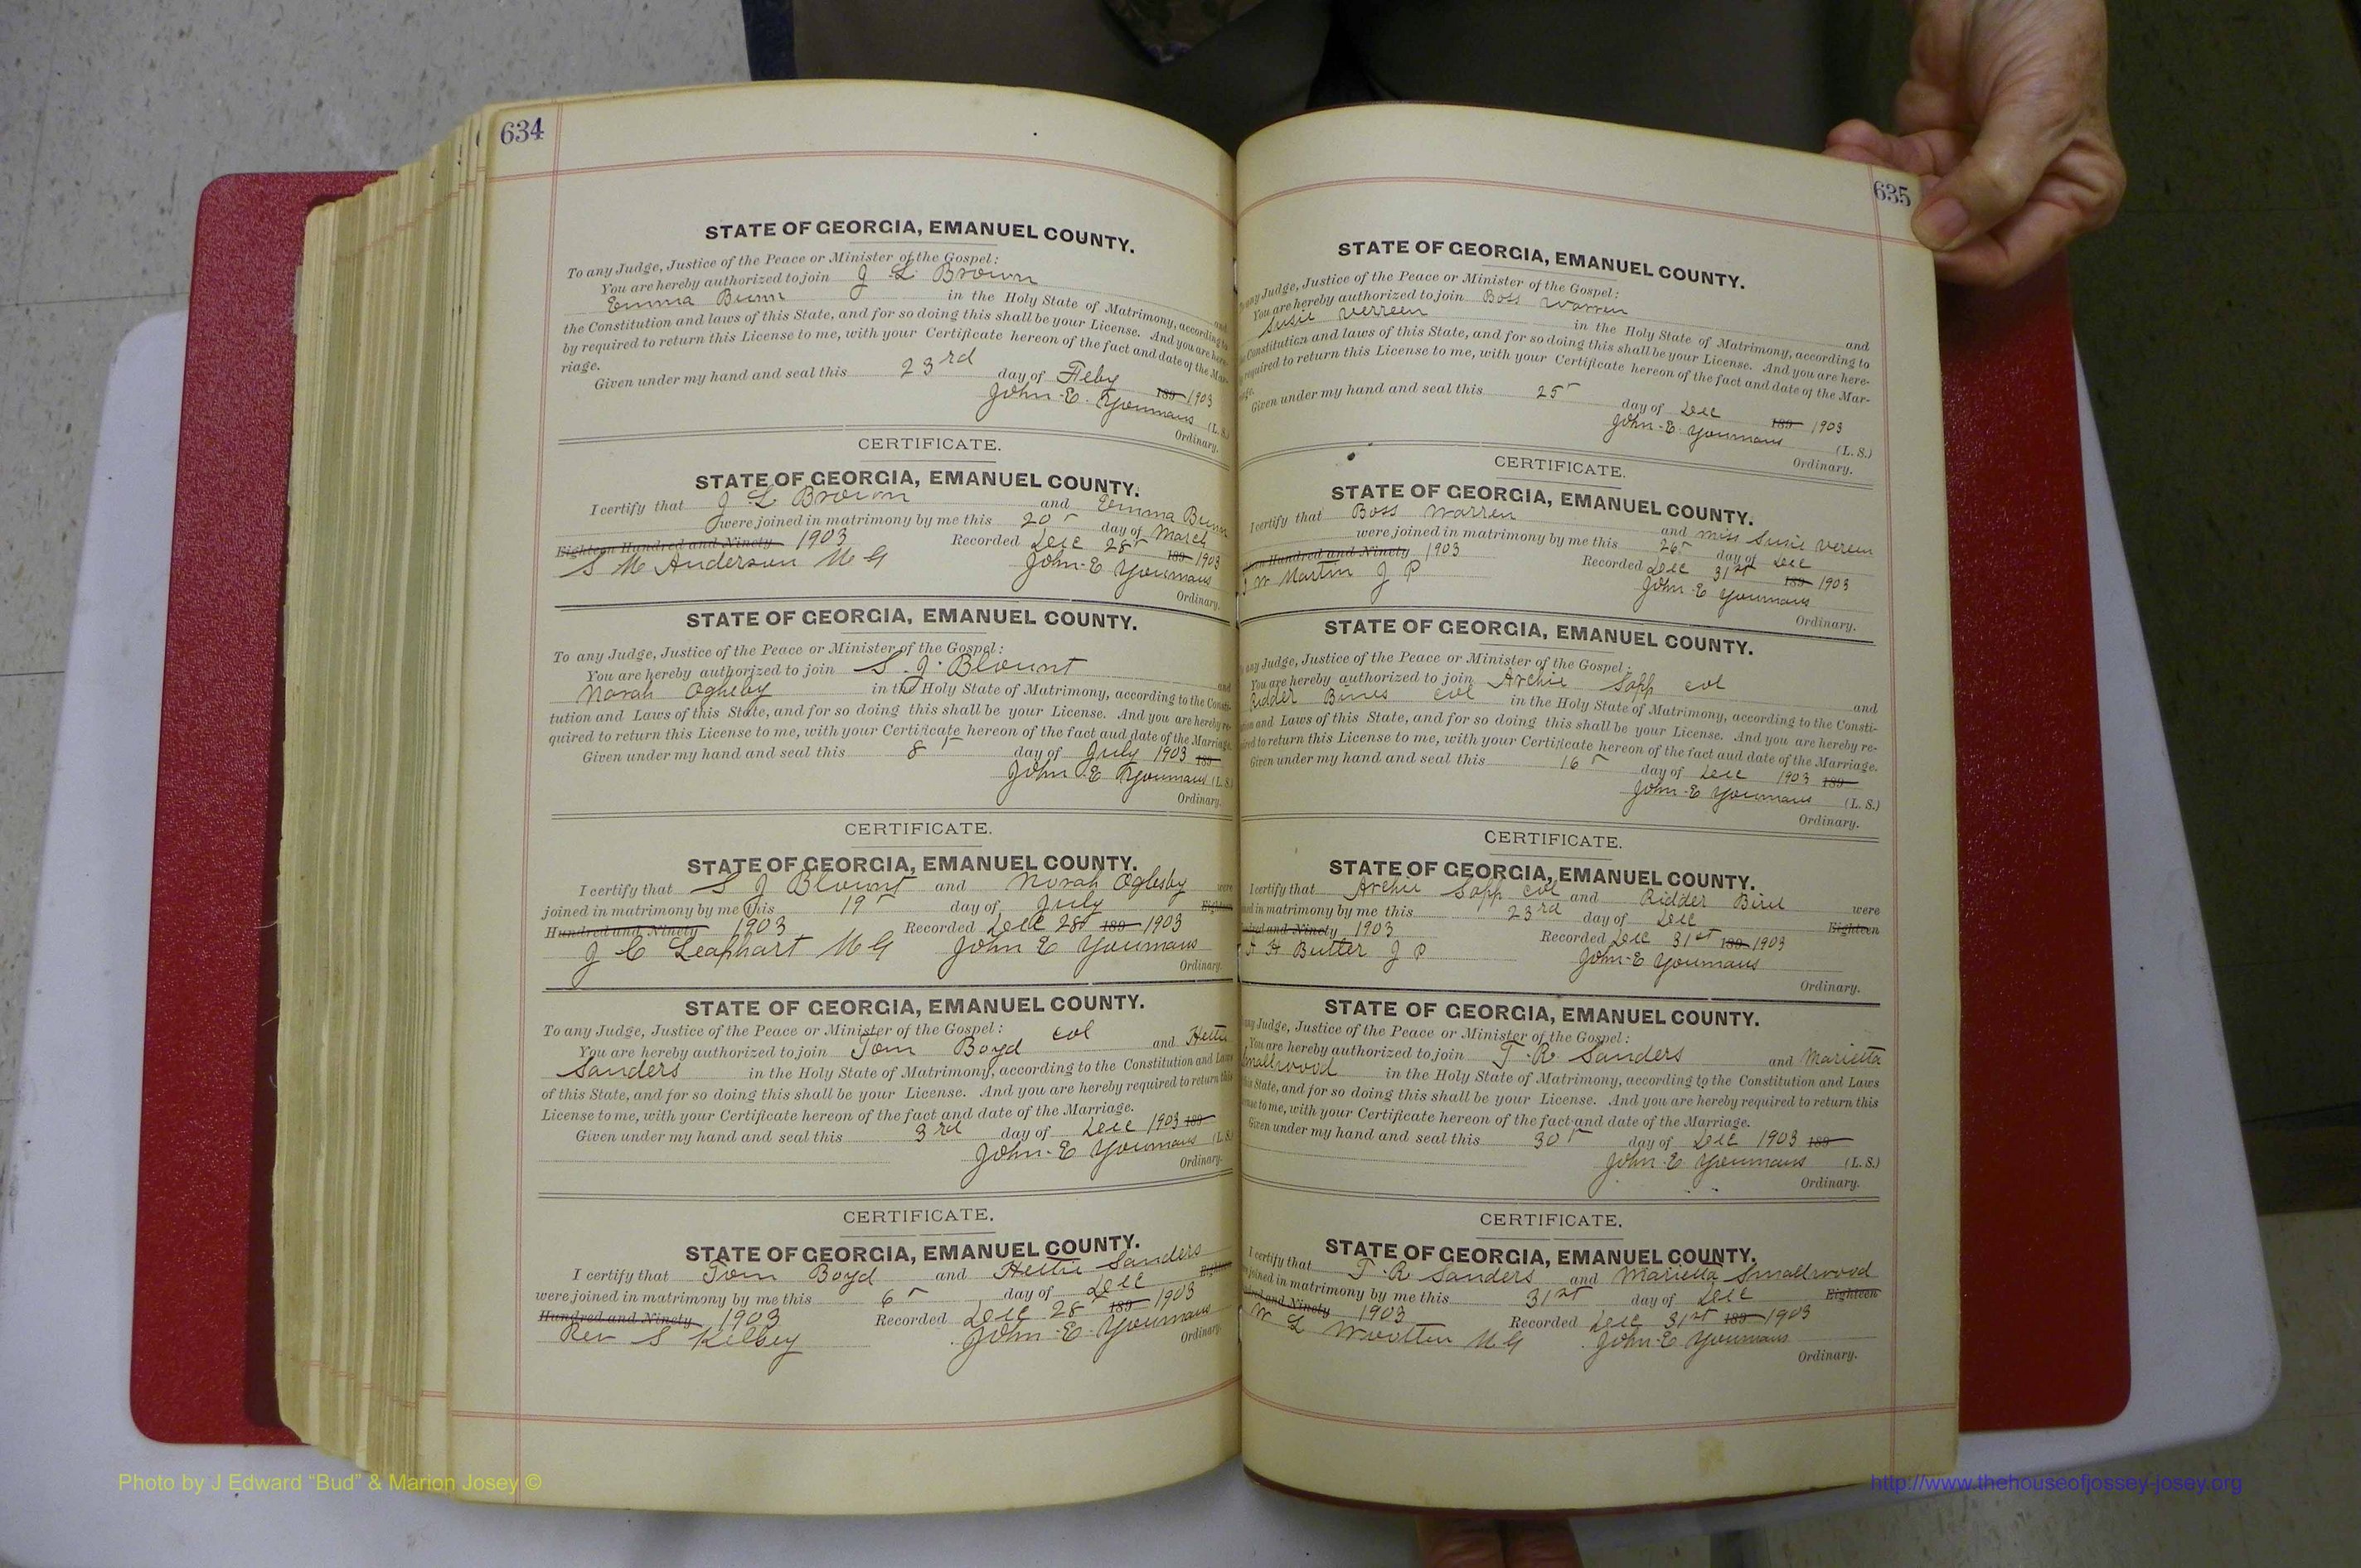 634
STATE OF GEORGIA, EMANUEL COUNTY.
To any Judge, Justice of the Peace or Minister of the Gospel:
You are hereby authorized to join J L Brown and
Emma Bunn in the Holy State of Matrimony, according to
the Constitution and laws of this State, and for so doing this shall be your License. And you are here-
by required to return this License to me, with your Certificate hereon of the fact and date of the Mar-
riage.
Given under my hand and seal this 23rd day of Feby 189 1903
John E. Youmans (L. S.)
Ordinary.
CERTIFICATE.
STATE OF GEORGIA, EMANUEL COUNTY.
I certify that J L Brown and Emma Bunn
were joined in matrimony by me this 20 day of March
Eighteen Hundred and Ninety 1903 Recorded Dec 28 189 1903
S M Anderson M G John E Youmans
Ordinary.
STATE OF GEORGIA, EMANUEL COUNTY.
To any Judge, Justice of the Peace or Minister of the Gospel:
You are hereby authorized to join S. J. Blount and
Norah Oglesby in the Holy State of Matrimony, according to the Consti-
tution and Laws of this State, and for so doing this shall be your License. And you are hereby re-
quired to return this License to me, with your Certificate hereon of the fact aud date of the Marriage.
Given under my hand and seal this 8 day of July 1903 189
John E Youmans (L. S.)
Ordinary.
CERTIFICATE.
STATE OF GEORGIA, EMANUEL COUNTY.
I certify that S J Blount and Norah Oglesby were
joined in matrimony by me this 19 day of July Eighteen
Hundred and Ninety 1903 Recorded Dec 28 189 1903
J C Leaphart M G John E Youmans
Ordinary.
STATE OF GEORGIA, EMANUEL COUNTY.
To any Judge, Justice of the Peace or Minister of the Gospel:
You are hereby authorized to join Tom Boyd col and Hettie
Sanders in the Holy State of Matrimony, according to the Constitution and Laws
of this State, and for so doing this shall be your License. And you are hereby required to return this
License to me, with your Certificate hereon of the fact and date of the Marriage.
Given under my hand and seal this 3rd day of Dec 1903 189
John E Youmans (L. S.)
Ordinary.
CERTIFICATE.
STATE OF GEORGIA, EMANUEL COUNTY.
I certify that Tom Boyd and Hettie Sanders
were joined in matrimony by me this 6 day of Dec Eighteen
Hundred and Ninety 1903 Recorded Dec 28 189 1903
Rev S Kelsey John E. Youmans
Ordinary.
635
STATE OF GEORGIA, EMANUEL COUNTY.
any Judge, Justice of the Peace or Minister of the Gospel:
You are hereby authorized to join Boss Warren and
Susie Verreen in the Holy State of Matrimony, according to
Constitution and laws of this State, and for so doing this shall be your License. And you are here-
required to return this License to me, with your Certificate hereon of the fact and date of the Mar-
Given under my hand and seal this 25 day of Dec 189 1903
John E Youmans (L. S.)
Ordinary.
CERTIFICATE.
STATE OF GEORGIA, EMANUEL COUNTY.
I certify that Boss Warren and miss Susie Vereen
were joined in matrimony by me this 26 day of Dec
Hundred and Ninety 1903 Recorded Dec 31st 189 1903
W Martin J P John E Youmans
Ordinary.
STATE OF GEORGIA, EMANUEL COUNTY.
any Judge, Justice of the Peace or Minister of the Gospel:
You are hereby authorized to join Archie Sapp col and
Ridder col in the Holy State of Matrimony, according to the Consti-
and Laws of this State, and for so doing this shall be your License. And you are hereby re-
to return this License to me, with your Certificate hereon of the fact aud date of the Marriage.
Given under my hand and seal this 16 day of Dec 1903 189
John E Youmans (L. S.)
Ordinary.
CERTIFICATE.
STATE OF GEORGIA, EMANUEL COUNTY.
I certify that Archie Sapp col and Ridder were
in matrimony by me this 23rd day of Dec Eighteen
and Ninety 1903 Recorded Dec 31st 189 1903
Butter J P John E Youmans
Ordinary.
STATE OF GEORGIA, EMANUEL COUNTY.
any Judge, Justice of the Peace or Minister of the Gospel:
You are hereby authorized to join T. R. Sanders and Marietta
Smallwood in the Holy State of Matrimony, according to the Constitution and Laws
this State, and for so doing this shall be your License. And you are hereby required to return this
to me, with your Certificate hereon of the fact and date of the Marriage.
Given under my hand and seal this 30 day of Dec 1903 189
John E Youmans (L. S.)
Ordinary.
CERTIFICATE.
STATE OF GEORGIA, EMANUEL COUNTY.
I certify that T R Sanders and Marietta Smallwood
joined in matrimony by me this 31st day of Dec Eighteen
and Ninety 1903 Recorded Dec 31st 189 1903
W L Wootten M G John E Youmans
Ordinary.
Photo by J Edward “Bud” & Marion Josey ©
http://www.thehouseofjossey-josey.org